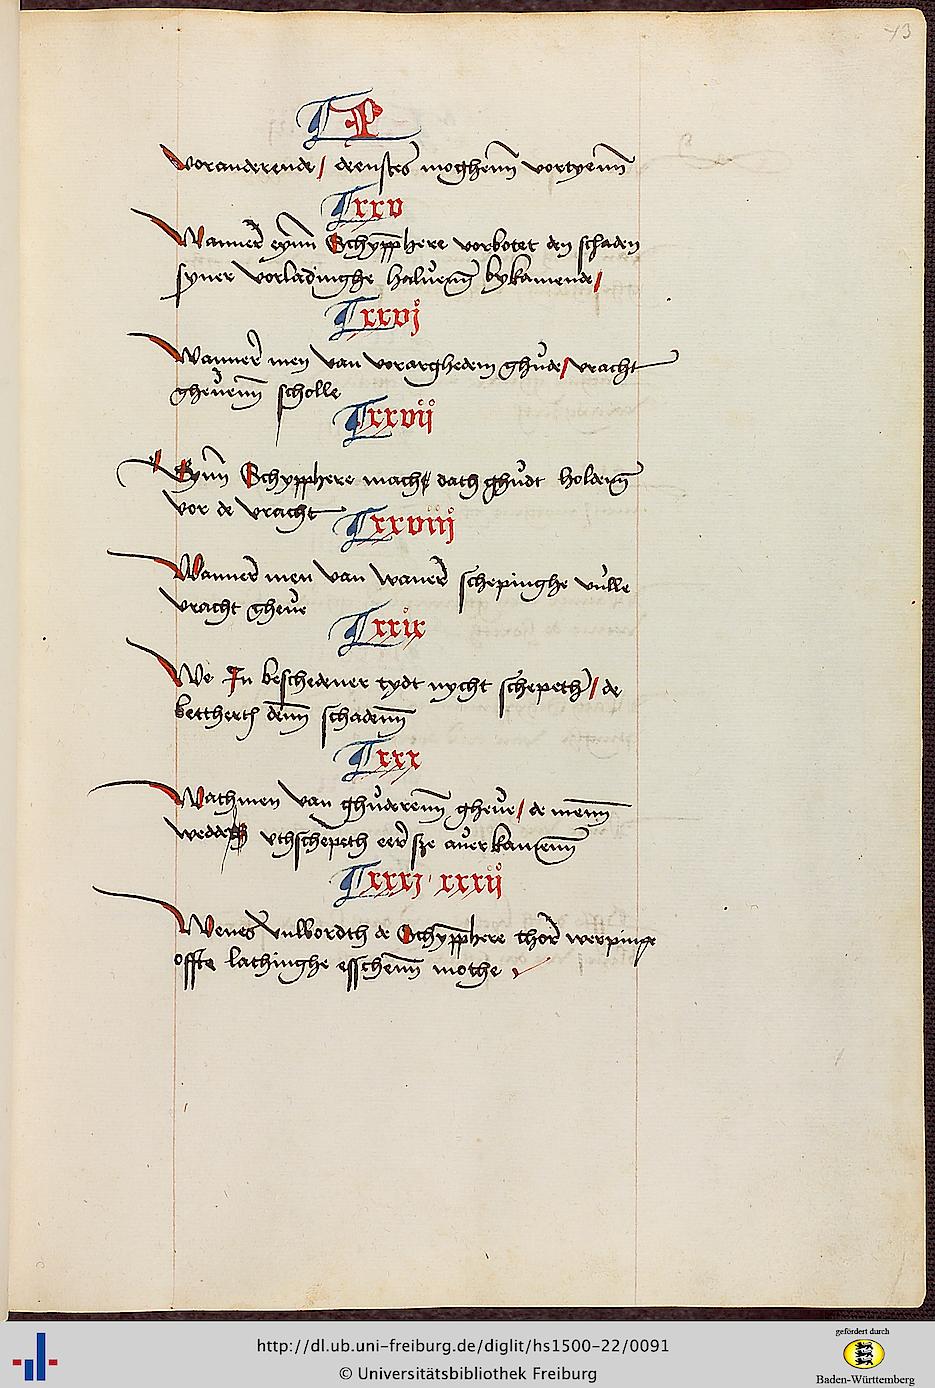 43
¶ P
voranderende / deenstes moghenn vortyenn
¶ xxv
Wanner eynn Schypphere vorbotet den schaden
syner vorladinghe haluenn bykamende /
¶ xxvj
Wanner men van vorarghedem ghude / vracht
gheuenn scholle
¶ xxvij
Eynn Schypphere mach dath ghudt holdenn
vor de vracht
¶ xxviij
Wanner men van waner schepinghe vulle
vracht gheue
¶ xxix
We In beschedener tydt nycht schepeth / de
betherth denn schadenn
¶ xxx
Wathmen van ghuderenn gheue / de menn
wedder vthschepeth eer sze auerkamenn
¶ xxxj xxxij
Wenes vulbordth de Schypphere thor werpinge
offte lathinghe esschenn mothe
http://dl.ub.uni-freiburg.de/diglit/hs1500-22/0091
© Universitätsbibliothek Freiburg
gefördert durch
Baden-Württemberg